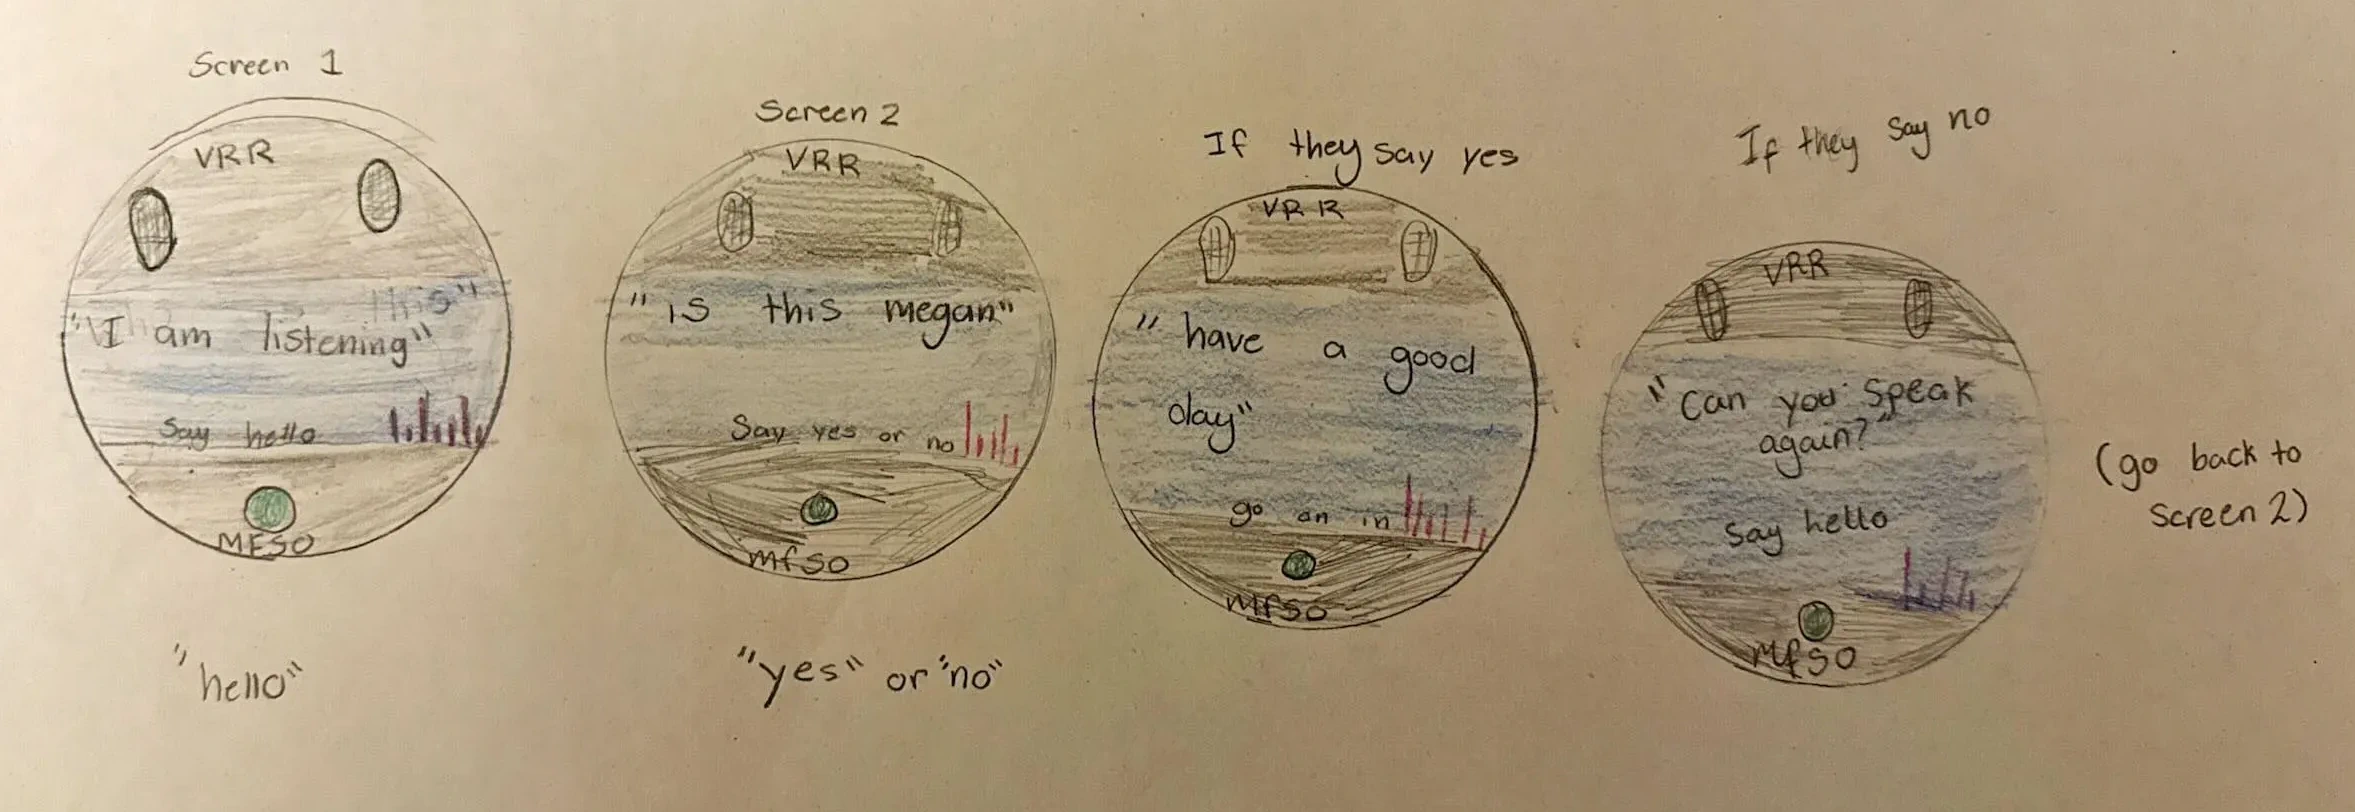 Screen 1
VRR
"I am listening"
this"
Say hello
MFSO
"hello"
Screen 2
VRR
"is this megan"
Say yes or no
mfso
"yes" or "no"
If they say yes
VRR
"have a good
day"
go on in
Mfso
If they say no
VRR
"Can you speak
again?"
Say hello
Mfso
(go back to
screen 2)